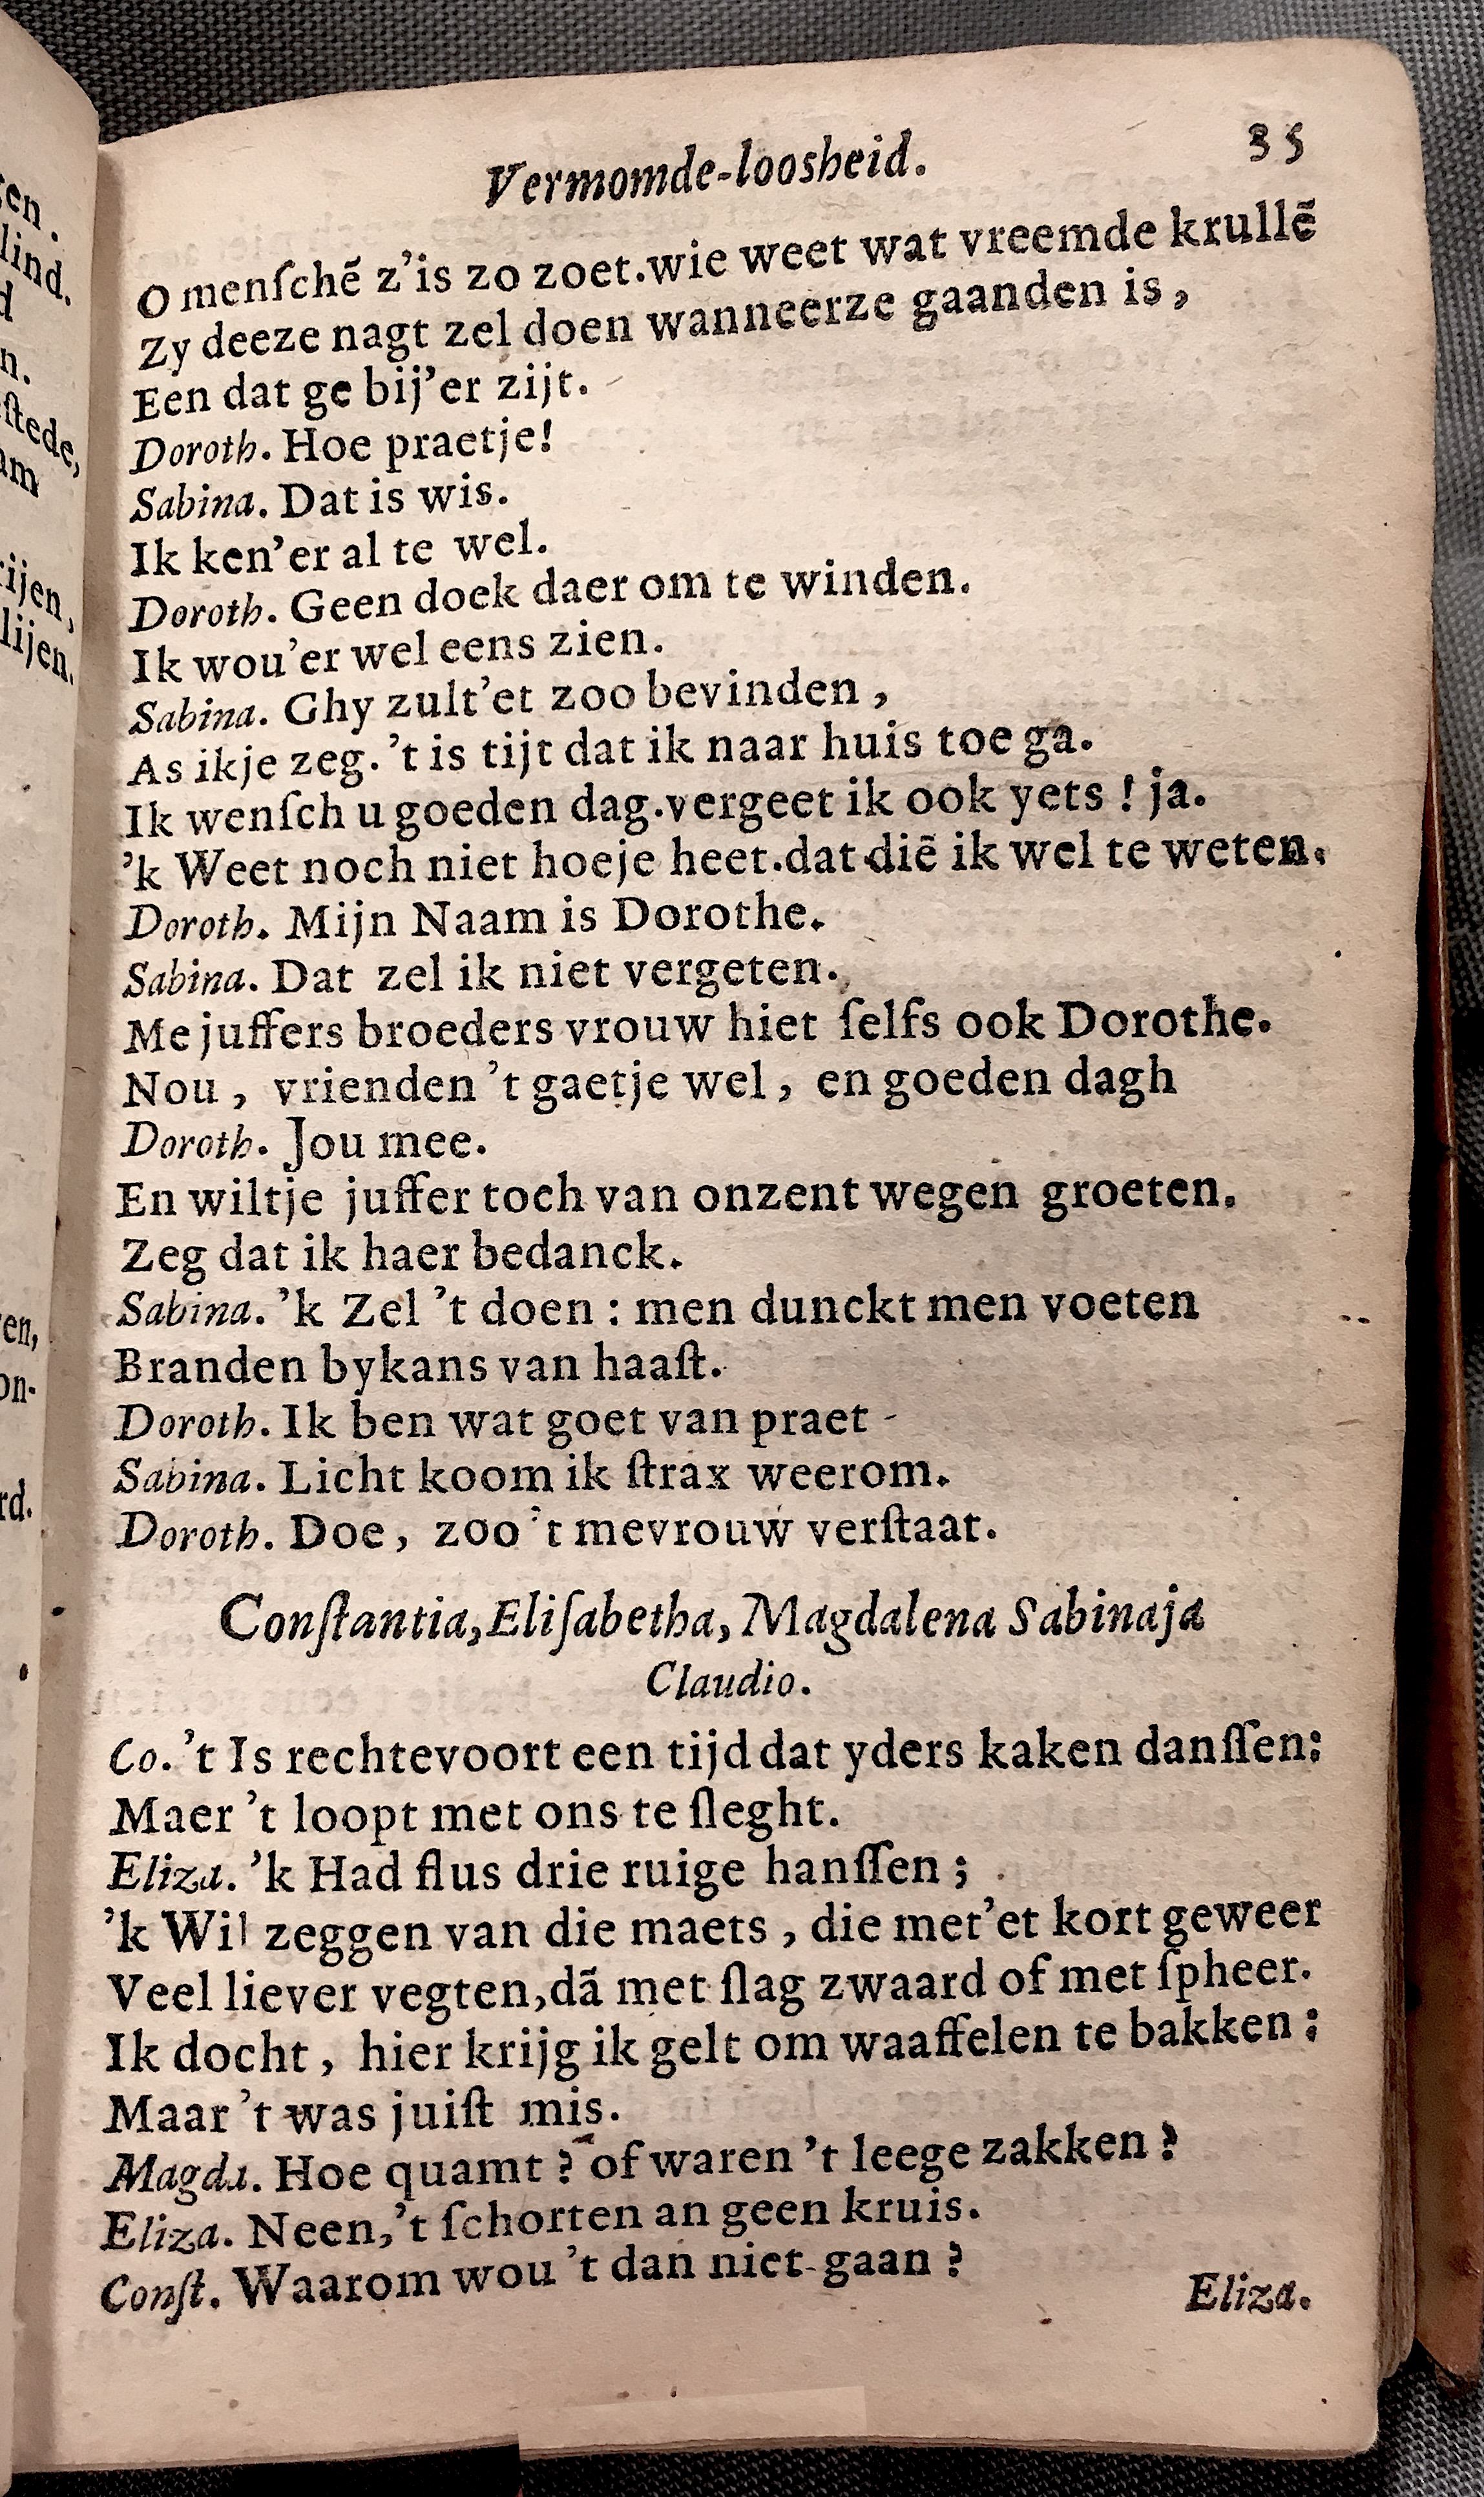 Vermomde-loosheid. 35
O menſchē z'is zo zoet.wie weet wat vreemde krullē
Zy deeze nagt zel doen wanneerze gaanden is,
Een dat ge bij'er zijt.
Doroth. Hoe praetje!
Sabina. Dat is wis.
Ik ken'er al te wel.
Doroth. Geen doek daer om te winden.
Ik wou'er wel eens zien.
Sabina. Ghy zult'et zoo bevinden,
As ikje zeg. 't is tijt dat ik naar huis toe ga.
Ik wenſch u goeden dag.vergeet ik ook yets! ja.
'k Weet noch niet hoeje heet.dat diē ik wel te weten.
Doroth. Mijn Naam is Dorothe.
Sabina. Dat zel ik niet vergeten.
Me juffers broeders vrouw hiet ſelfs ook Dorothe.
Nou, vrienden 't gaetje wel, en goeden dagh
Doroth. Jou mee.
En wiltje juffer toch van onzent wegen groeten.
Zeg dat ik haer bedanck.
Sabina. 'k Zel 't doen: men dunckt men voeten
Branden bykans van haaſt.
Doroth. Ik ben wat goet van praet -
Sabina. Licht koom ik ſtrax weerom.
Doroth. Doe, zoo 't mevrouw verſtaat.
Conſtantia, Eliſabetha, Magdalena Sabinaja
Claudio.
Co. 't Is rechtevoort een tijd dat yders kaken danſſen:
Maer 't loopt met ons te ſleght.
Eliza. 'k Had flus drie ruige hanſſen;
'k Wil zeggen van die maets, die met'et kort geweer
Veel liever vegten,dā met ſlag zwaard of met ſpheer.
Ik docht, hier krijg ik gelt om waaffelen te bakken:
Maar 't was juiſt mis.
Magda. Hoe quamt? of waren 't leege zakken?
Eliza. Neen,'t ſchorten an geen kruis.
Conſt. Waarom wou 't dan niet gaan?
Eliza.
ſtede,
rijen,
lijen.
lind.